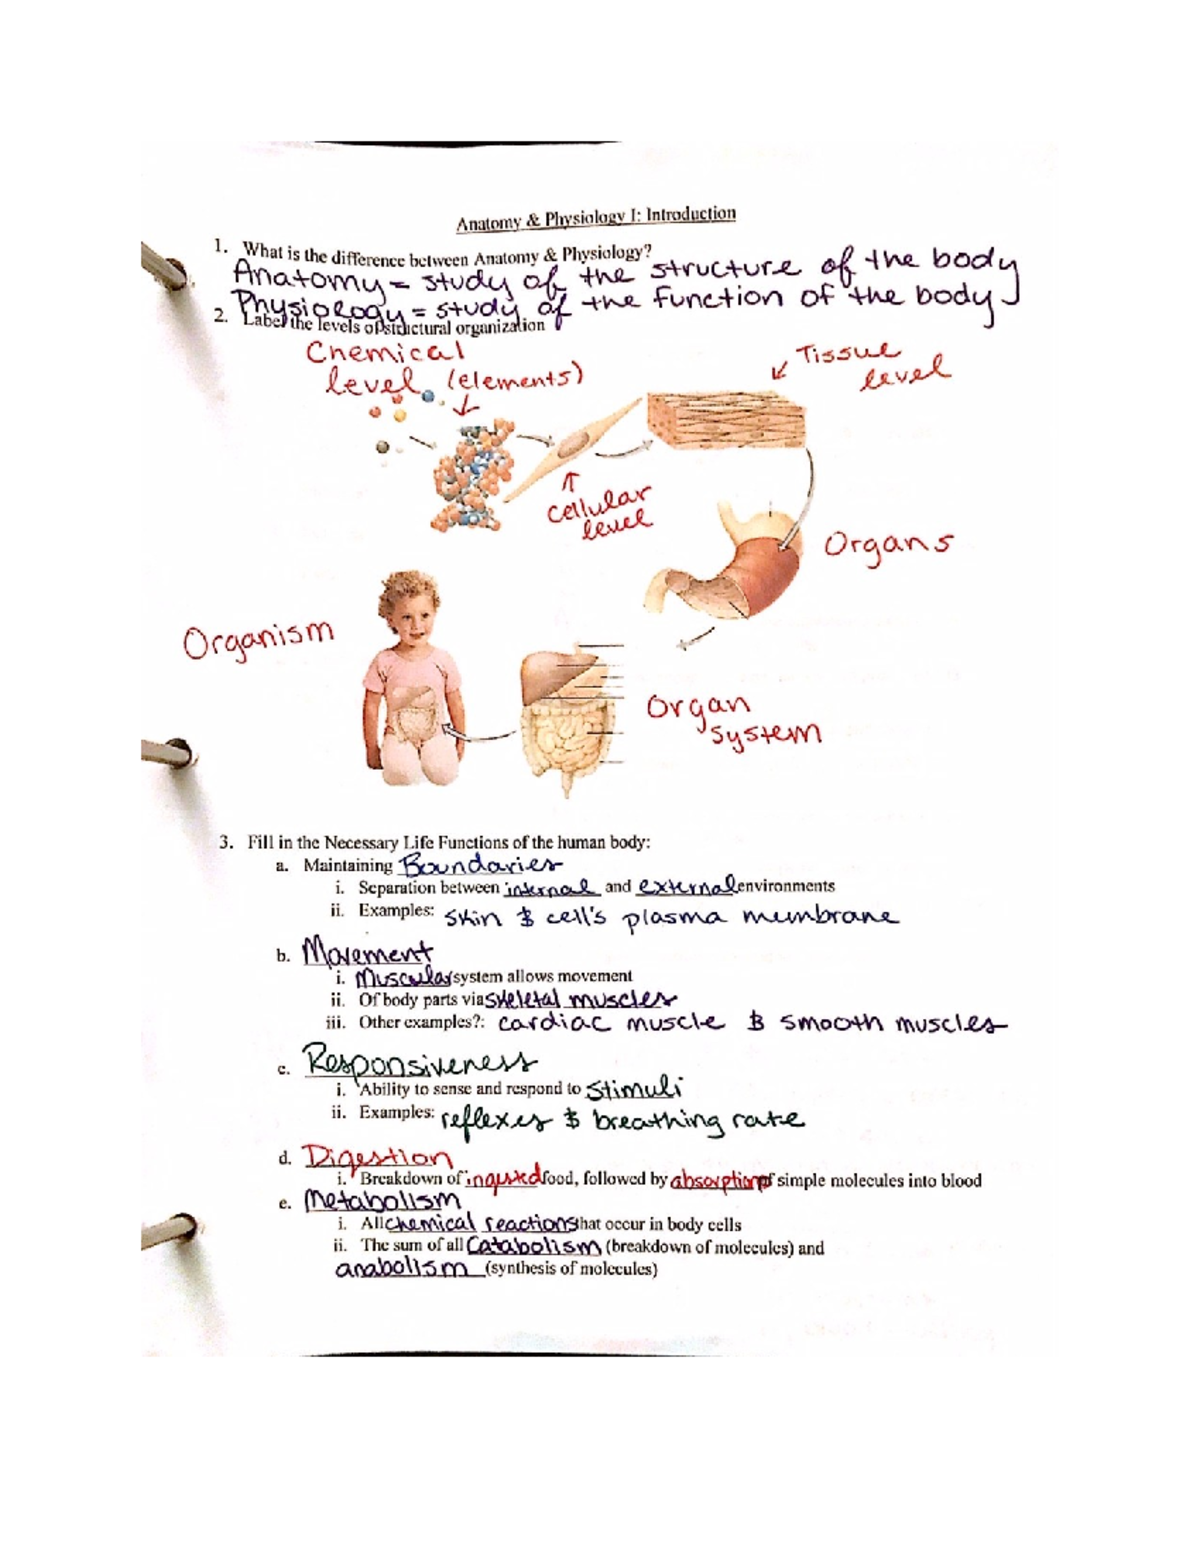 Anatomy & Physiology I: Introduction
1. What is the difference between Anatomy & Physiology?
Anatomy = study of the structure of the body
Physiology = study of the function of the body
2. Label the levels of structural organization
Chemical level (elements)
Tissue level
Cellular level
Organs
Organism
Organ system
3. Fill in the Necessary Life Functions of the human body:
a. Maintaining Boundaries
i. Separation between internal and external environments
ii. Examples: skin & cell's plasma mumbrane
b. Movement
i. Muscular system allows movement
ii. Of body parts via skeletal muscles
iii. Other examples?: cardiac muscle & smooth muscles
c. Responsiveness
i. Ability to sense and respond to stimuli
ii. Examples: reflexes & breathing rate
d. Digestion
i. Breakdown of ingested food, followed by absorption of simple molecules into blood
e. Metabolism
i. All chemical reactions that occur in body cells
ii. The sum of all Catabolism (breakdown of molecules) and
anabolism (synthesis of molecules)